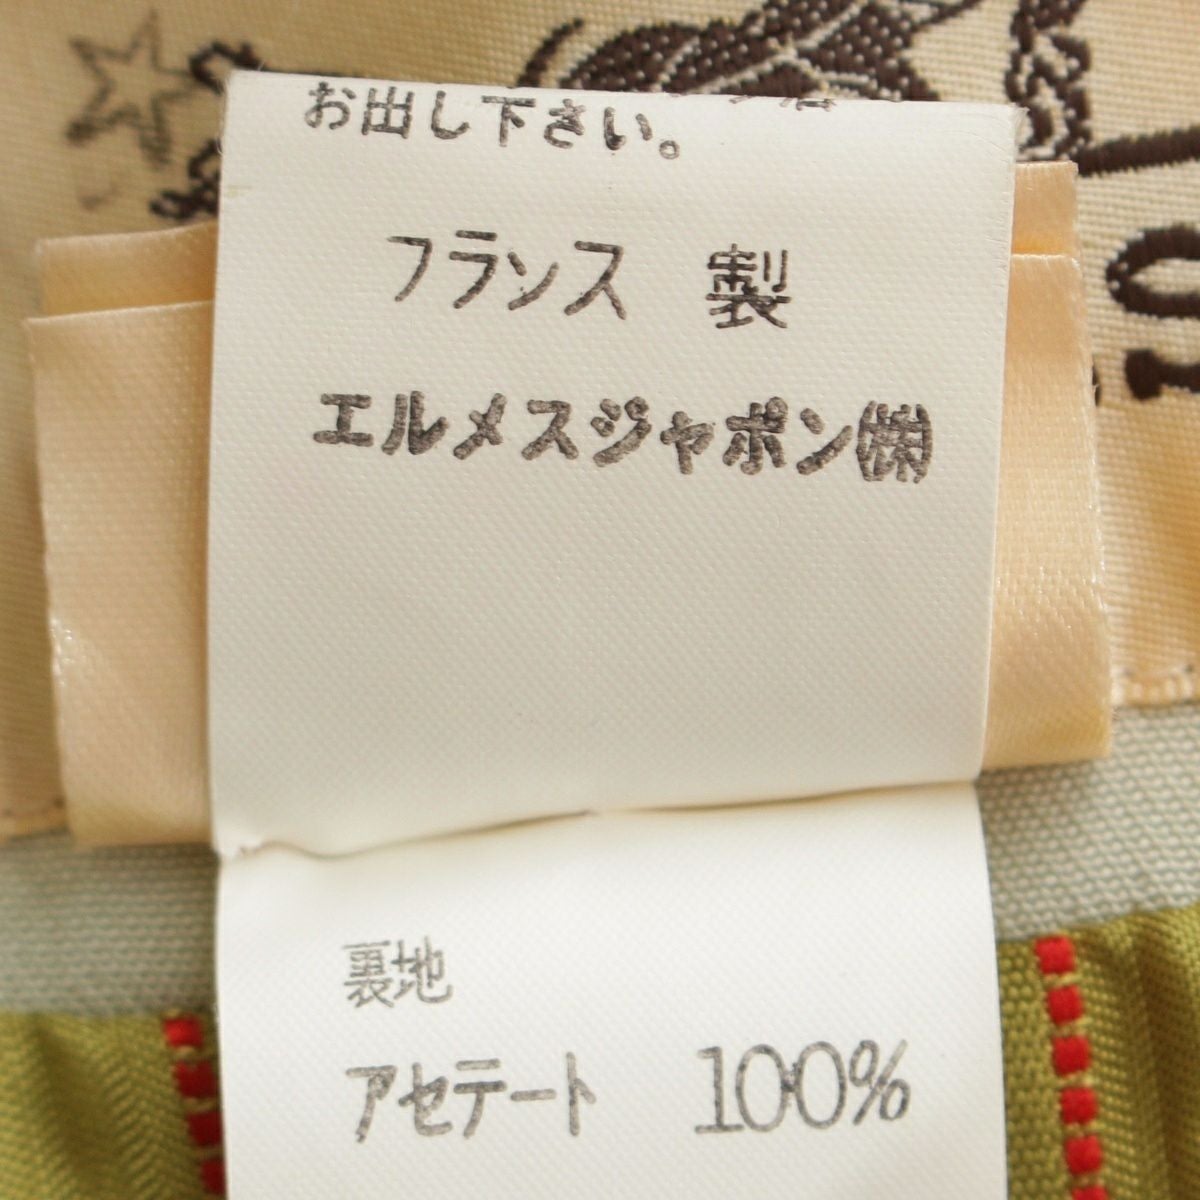 お出し下さい。
フランス 製
エルメスジャポン㈱
裏地
アセテート 100%